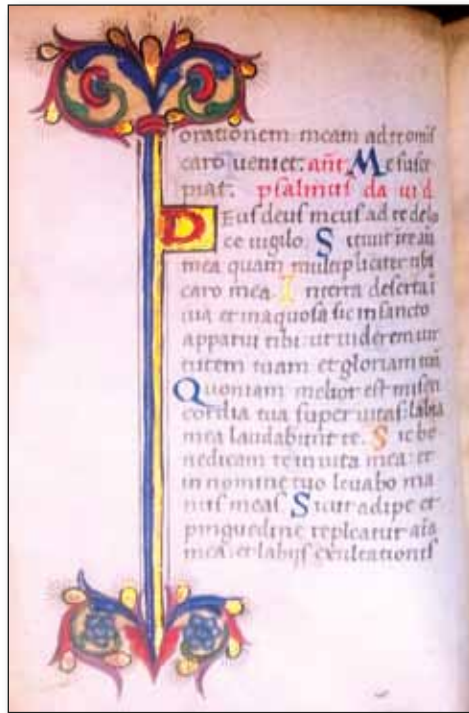 orationem meam ad te omnis
caro veniet: añt Me susce
piat: psalmus da ui d
DEus deus meus ad te de lu
ce uigilo. Sitiuit in te aīa
mea quam multipliciter tibi
caro mea In terra deserta i
uia et in aquosa sic in sancto
apparui tibi: ut uiderem uir
tutem tuam et gloriam tuā
Quoniam melior est miseri
cordia tua super uitas: labia
mea laudabunt te. Sic be
nedicam te in uita mea: et
in nomine tuo leuabo ma
nus meas Sicut adipe et
pinguedine repleatur aīa
mea: et labijs exultationis